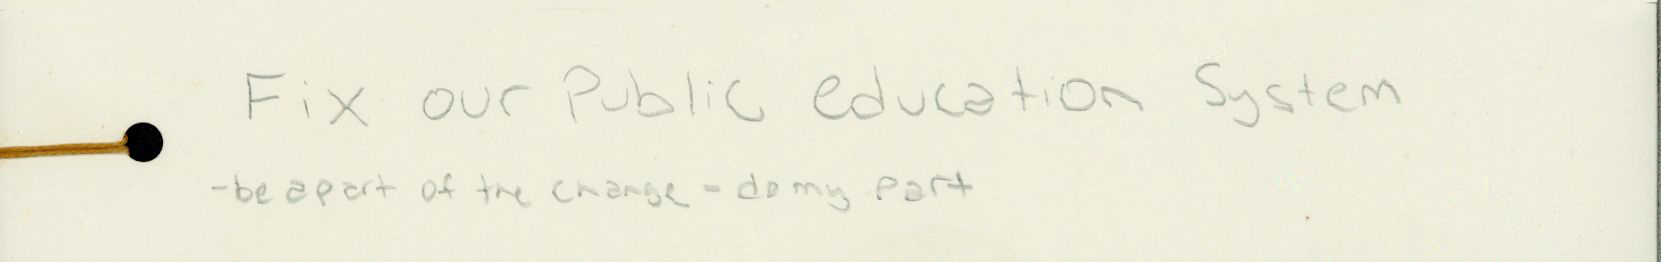 Fix our Public education System
-be apart of the change - do my part